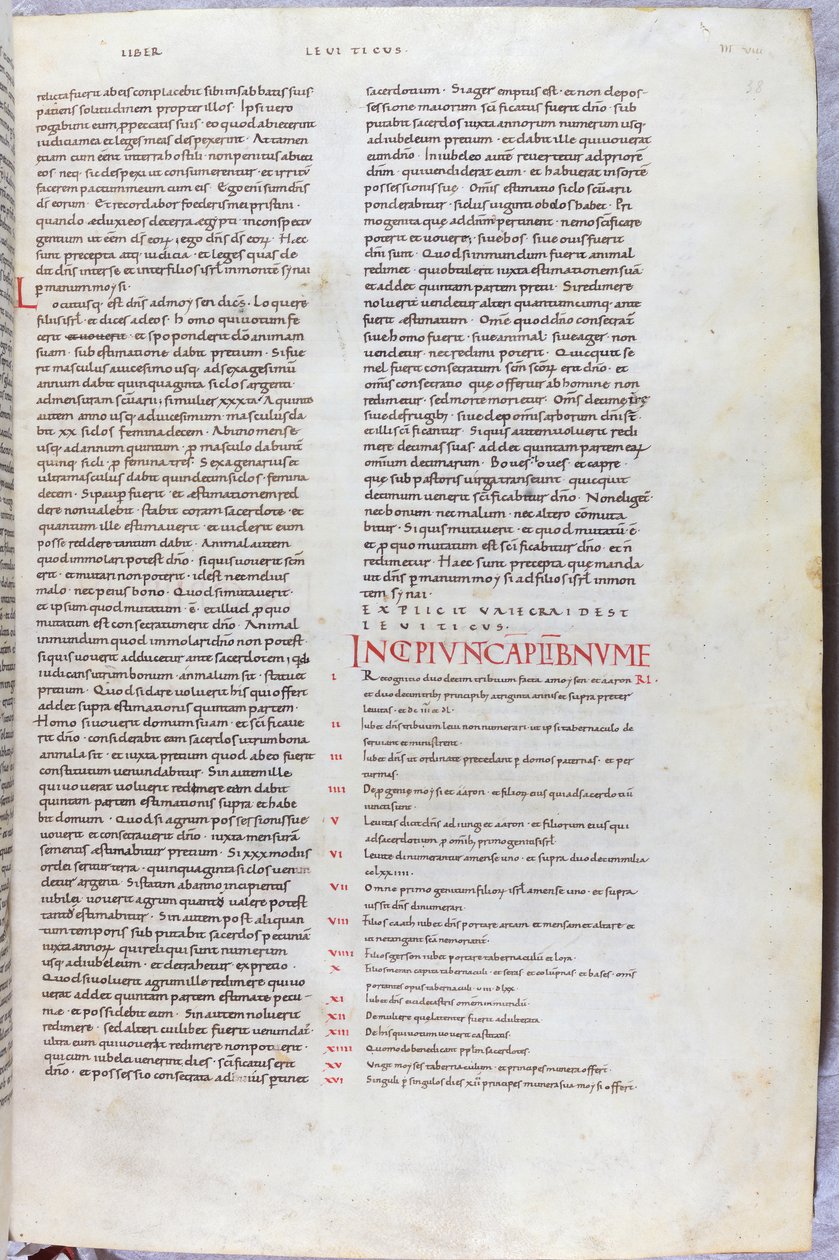 LIBER LEVITICUS·
38
relicta fuerit ab eis conplacebit sibi in sabbatis suis
patiens solitudinem propter illos · Ipsi vero
rogabunt eum p peccatis suis · eo quod abiecerint
iudicia mea et leges meas despexerint · Attamen
etiam cum eent in terra hostili · non penitus abieci
eos neq; sic despexi ut consumerentur · et irritũ
facerem pactum meum cum eis · Ego eni sum dñs
dš eorum · Et recordabor foederis mei pristini ·
quando æduxi eos de terra ægypti · in conspectu
gentium ut eem dš eoꝝ ; ego dñs dš eoꝝ · Haec
sunt precepta atq; iudicia · et leges quas de
dit dñs inter se et inter filios isrł in monte synai
p manum moysi ·
Locutusq; est dñs ad moysen dicš · Loquere
filiis isrł · et dices ad eos · homo qui votum fe
cerit et voverit et spoponderit dõ animam
suam · sub estimatione dabit pretium · Si fue
rit masculus a vicesimo usq; ad sexagesimũ
annum dabit quinquaginta siclos argenti
ad mensuram scuarii; si mulier xxxta · A quinto
autem anno usq; ad vicesimum masculus da
bit xx siclos femina decem · Ab uno mense
usq; ad annum quintum · p masculo dabunt
quinq; sicli · p femina tres · Sexagenarius et
ultra masculus dabit quindecim siclos · femina
decem · Si paup fuerit et æstimationem red
dere non valebit · stabit coram sacerdote · et
quantum ille estimaverit · et viderit eum
posse reddere tantum dabit · Animal autem
quod immolari potest dño · si quis voverit scm
erit · et mutari non poterit · idest nec melius
malo · nec peius bono · Quod si mutaverit ·
et ipsum quod mutatum ē · et illud p quo
mutatum est consecratum erit dño · Animal
inmundum quod immolari dño non potest ·
si quis voverit adducetur ante sacerdotem ; qui
iudicans utrum bonum an malum sit · statuet
pretium · Quod si dare voluerit his qui offert
addet supra estimationis quintam partem ·
Homo si voverit domum suam · et scificave
rit dño · considerabit eam sacerdos utrum bona
an mala sit · et iuxta pretium quod ab eo fuerit
constitutum venundabitur · Sin autem ille
qui voverat voluerit redimere eam dabit
quintam partem estimationis supra et habe
bit domum · Quod si agrum possessionis sue
voverit et consecraverit dño · iuxta mensurã
sementis æstimabitur pretium · Si xxx modiis
ordei seritur terra · quinquaginta siclos venun
detur argenti · Si statim ab anno incipientis
iubilei voverit agrum quanto valere potest
tanto estimabitur · Sin autem post aliquan
tum temporis subputabit sacerdos pecuniã
iuxta annoꝝ qui reliqui sunt numerum
usq; ad iubeleum · et detrahetur ex pretio ·
Quod si voluerit agrum ille redimere qui vo
verat addet quintam partem estimate pecu
niæ · et possidebit eum · Sin autem noluerit
redimere · sed alteri cuilibet fuerit venundat
ultra eum qui voverat redimere non poterit ·
qui cum iubelei venerint dies · scificatus erit
dño · et possessio consecrata ad ius pertinet
sacerdotum · Si ager emptus est · et non de pos
sessione maiorum scificatus fuerit dño · sub
putabit sacerdos iuxta annorum numerum usq;
ad iubeleum pretium · et dabit ille qui voverat
eum dño · In iubeleo autē revertetur ad priorē
dnm · qui vendiderat eum · et habuerat in sorte
possessionis sue · Omis estimatio siclo scuarii
ponderabitur · siclus viginti obolos habet · Pri
mogenita que ad dnm pertinent · nemo scificare
poterit et vovere ; sive bos · sive ovis fuerit
dñi sunt · Quod si inmundum fuerit animal
redimet qui obtulerit iuxta estimationem suã
et addet quintam partem pretii · Si redimere
noluerit vendetur alteri quantumcumq; a te
fuerit æstimatum · Ome quod dño consecrat
sive homo fuerit · sive animal · sive ager · non
vendetur · nec redimi poterit · Quicquit se
mel fuerit consecratum scm scoꝝ erit dño · et
omis consecratio que offertur ab homine non
redimetur · sed morte morietur · Oms decime tre
sive de frugib; · sive de pomis arborum dni st ·
et illi scificantur · Si quis autem voluerit redi
mere decimas suas · addet quintam partem eaꝝ
omnium decimarum · Boves · oves · et capre ·
que sub pastoris virga transeunt · quicquit
decimum venerit scificabitur dño · Non eliget
nec bonum nec malum · nec altero cõmuta
bitur · Si quis mutaverit · et quod mutatũ ē ·
et p quo mutatum est scificabitur dño · et ñ
redimetur · Haec sunt precepta que manda
vit dñs p manum moysi ad filios isrł in mon
tem synai ·
EXPLICIT VAIECRA IDEST
LEVITICUS ·
INCIPIUNT CAPL LIB NUME
RI ·
I Recognitio duodecim tribuum facta a moysen · et aaron
et duodecim trib; principib; a triginta annis et supra preter
levitas · et dc iii et dl ·
II Iubet dñs tribum levi non numerari · ut ipsi tabernaculo de
serviant et ministrent ·
III Iubet dñs ut ordinate precedant p domos paternas · et per
turmas ·
IIII De pgenie moysi et aaron · et filioꝝ eius qui ad sacerdotiũ
uncti sunt ·
V Levitas dicit dñs adiungi et aaron · et filiorum eius qui
ad sacerdotium p omib; primogenitis isrł
VI Levite dinumerantur a mense uno · et supra duodecim milia
cclxxiiii ·
VII Omne primogenitum filioꝝ isrł a mense uno · et supra
iussit dñs dinumerari ·
VIII Filios caath iubet dñs portare arcam et mensam et altare · et
ut ne tangant sca ne moriant ·
VIIII Filios gerson iubet portare tabernaculũ et lora ·
X Filios merari capita tabernaculi · et seras et columpnas et bases · oms
portantes opus tabernaculi · viii · dlxx ·
XI Iubet dñs eici de castris omem inmundũ ·
XII De muliere que latenter fuerit adulterata
XIII De his qui votum voverit castitatis ·
XIIII Quomodo benedicant pplm sacerdotes ·
XV Unge moyses tabernaculum · et principes munera offert ·
XVI Singuli p singulos dies xii principes munera sua moysi offert ·